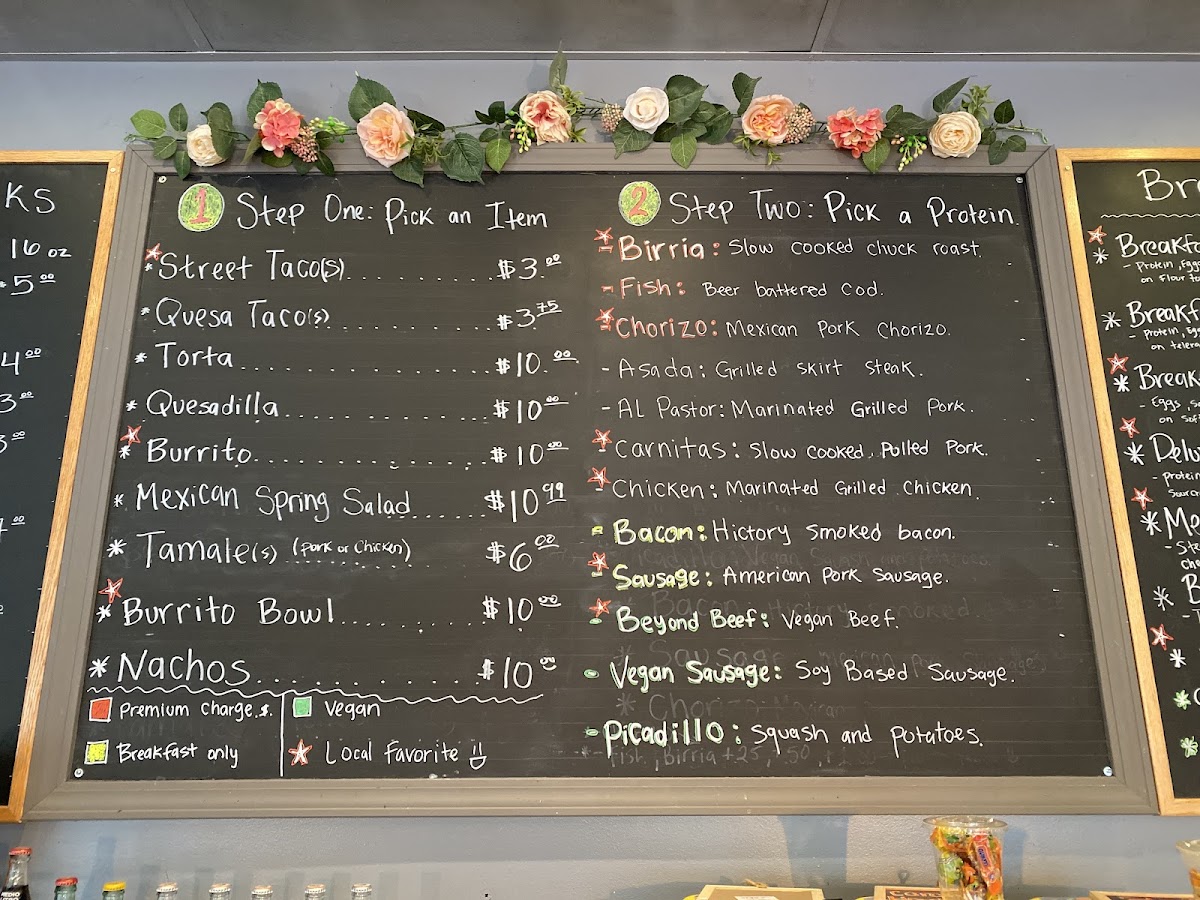 KS
16 oz
5.00
4.00
3.00
3.00
1 Step One: Pick an Item
* Street Taco(s)..........$3.00
* Quesa Taco(s)..........$3.75
* Torta..........$10.00
* Quesadilla..........$10.00
* Burrito..........$10.00
* Mexican Spring Salad......$10.99
* Tamale(s) (Pork or Chicken) $6.00
* Burrito Bowl..........$10.00
* Nachos..........$10.00
Premium Charge.$.
Vegan
Breakfast only
Local Favorite
2 Step Two: Pick a Protein.
- Birria: Slow cooked chuck roast.
- Fish: Beer battered Cod.
- Chorizo: Mexican Pork Chorizo.
- Asada: Grilled skirt steak.
- AL Pastor: Marinated Grilled Pork.
- Carnitas: Slow Cooked, Pulled Pork.
- Chicken: Marinated Grilled Chicken.
- Bacon: Hictory smoked bacon.
- Sausage: American Pork Sausage.
- Beyond Beef: Vegan Beef.
- Vegan Sausage: Soy Based Sausage.
- Picadillo: Squash and Potatoes.
Br
* Breakf
- Protein, Egg
on Flour to
* Breakf
- Protein, Eg
on telera
* Break
- Eggs, S
on Sof
* Delu
- Protein
Sour
* Mo
- Ste
che
* B